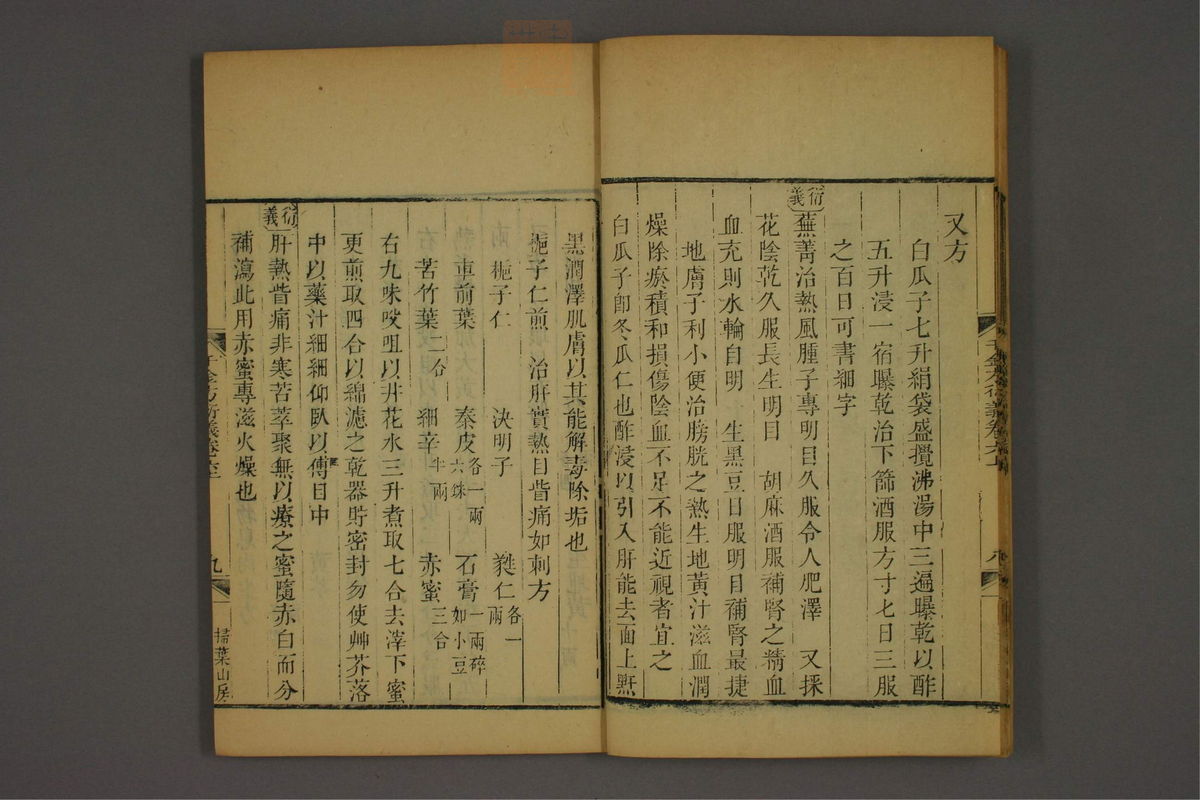 又方
白瓜子七升絹袋盛攪沸湯中三遍曝乾以酢
五升浸一宿曝乾治下篩酒服方寸七日三服
之百日可書細字
衍義
蕪菁治熱風腫子專明目久服令人肥澤　又採
花陰乾久服長生明目　胡麻酒服補腎之精血
血充則水輪自明　生黑豆日服明目補腎最捷
地膚子利小便治膀胱之熱生地黃汁滋血潤
燥除瘀積和損傷陰血不足不能近視者宜之
白瓜子卽冬瓜仁也酢浸以引入肝能去面上䵟
千金方衍義卷六上
八
黑潤澤肌膚以其能解毒除垢也
梔子仁煎　治肝實熱目眥痛如刺方
梔子仁　決明子　蕤仁各一兩
車前葉　秦皮各一兩六銖　石膏一兩碎如小豆
苦竹葉二合　細辛半兩　赤蜜三合
右九味㕮咀以井花水三升煮取七合去滓下蜜
更煎取四合以綿濾之乾器貯密封勿使艸芥落
中以藥汁細細仰臥以傅目中
衍義
肝熱眥痛非寒苦萃聚無以療之蜜隨赤白而分
補瀉此用赤蜜專滋火燥也
千金方衍義卷六上
九
掃葉山房